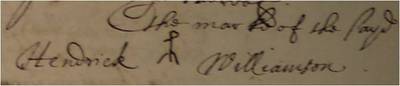 the mark of the sayd
Hendrick Williamson.